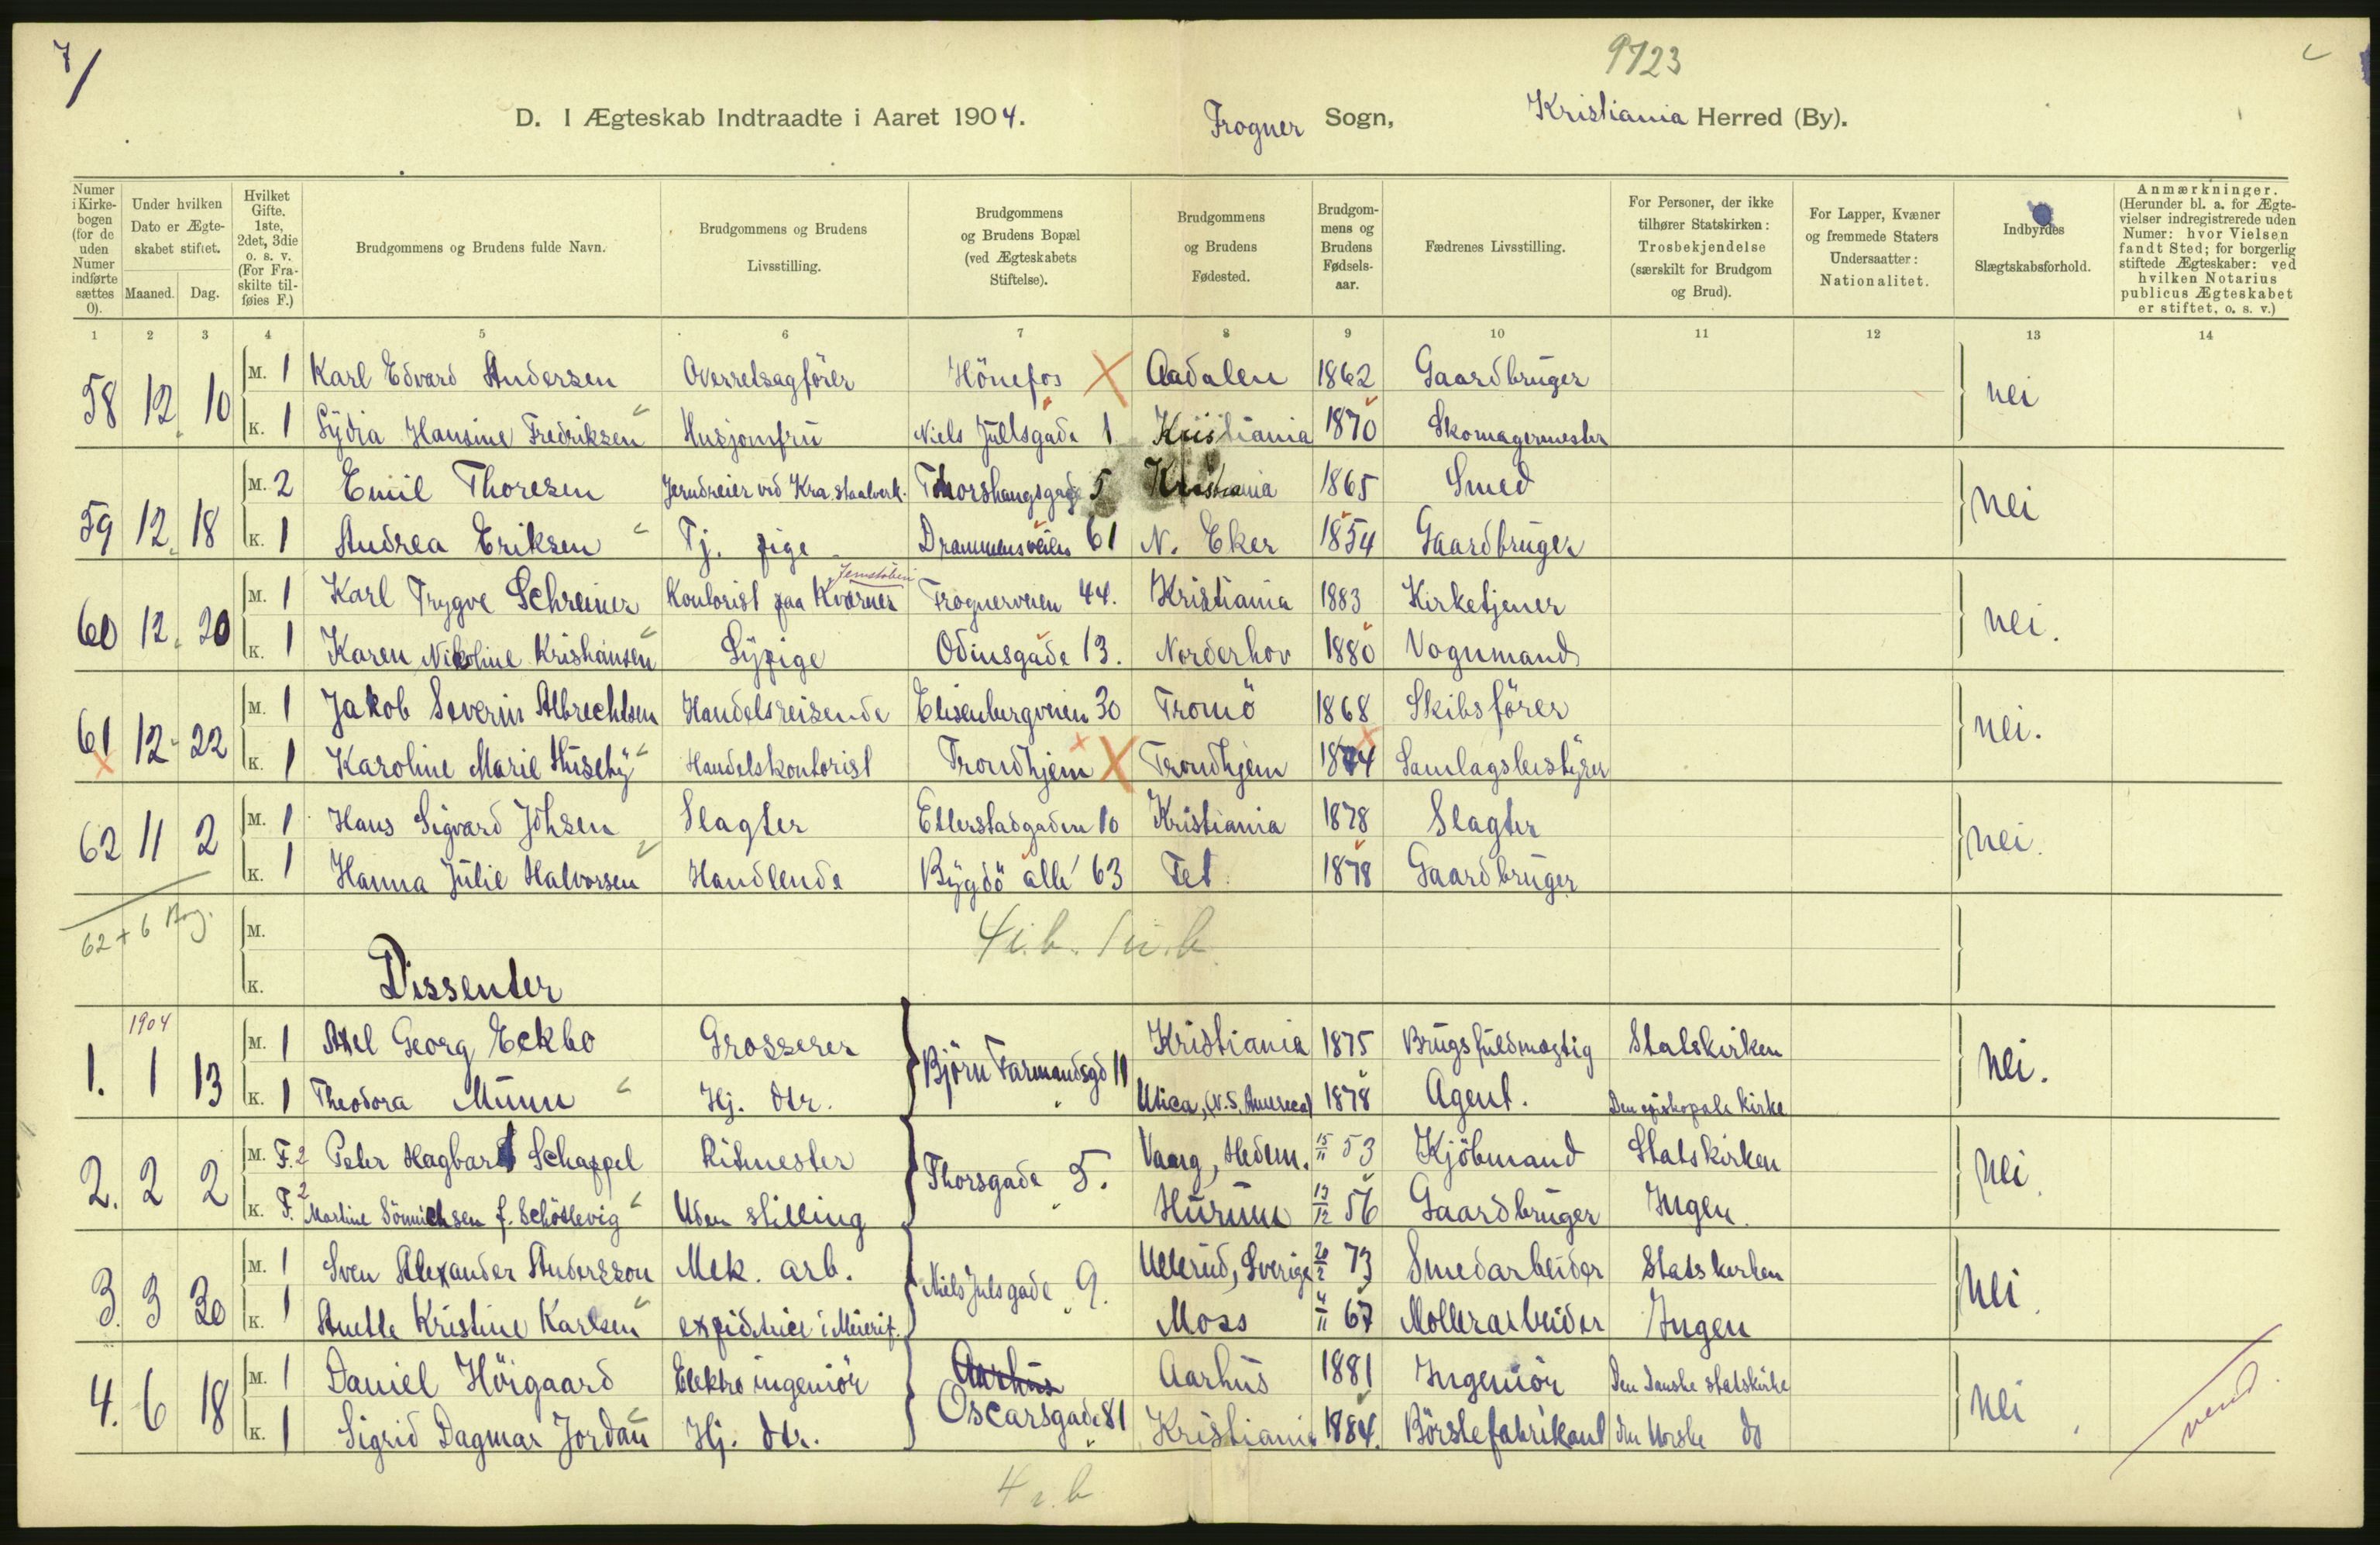 7/
9723
D. I Ægteskab Indtraadte i Aaret 1904. Frogner Sogn, Kristiania Herred (By).
Numer i Kirkebogen (for de uden Numer indførte sættes 0).
Under hvilken Dato er Ægteskabet stiftet.
Maaned. Dag.
Hvilket Gifte. 1ste, 2det, 3die o. s. v. (For Fraskilte tilføies F.)
Brudgommens og Brudens fulde Navn.
Brudgommens og Brudens Livsstilling.
Brudgommens og Brudens Bopæl (ved Ægteskabets Stiftelse).
Brudgommens og Brudens Fødested.
Brudgommens og Brudens Fødselsaar.
Fædrenes Livsstilling.
For Personer, der ikke tilhører Statskirken: Trosbekjendelse (særskilt for Brudgom og Brud).
For Lapper, Kvæner og fremmede Staters Undersaatter: Nationalitet.
Indbyrdes Slægtskabsforhold.
Anmærkninger. (Herunder bl. a. for Ægtevielser indregistrerede uden Numer: hvor Vielsen fandt Sted; for borgerlig stiftede Ægteskaber: ved hvilken Notarius publicus Ægteskabet er stiftet, o. s. v.)
1 2 3 4 5 6 7 8 9 10 11 12 13 14
58 12. 10 M. 1 Karl Edvard Andersen Overretsagfører Hönefos X Aadalen 1862 Gaardbruger nei
K. 1 Lydia Hansine Fredriksen Husjomfru Niels Jullsgade 1 Kristiania 1870 Skomagermester
59 12. 18 M. 2 Emil Thoresen Jerndreier ved Kra. staalverk. Thorshaugsgade 5 Kristiania 1865 Smed nei
K. 1 Andrea Eriksen Tj. pige Drammensveien 61 N. Eker 1854 Gaardbruger
Jernstøberi
60 12. 20 M. 1 Karl Trygve Schreiner Kontorist paa Kværner Frognerveien 44. Kristiania 1883 Kirketjener nei.
K. 1 Karen Nikoline Kristiansen Sypige Odinsgade 13. Norderhov 1880 Vognmand
61 12. 22 M. 1 Jakob Severin Albrechtsen Handelsreisende Elisenbergveien 30 Tromö 1868 Skibsförer nei.
K. 1 Karoline Marie Huseby Handelskontorist Trondhjem X Trondhjem 1874 Samlagsbestyrer
62 11 2 M. 1 Hans Sigvard Johsen Slagter Ellerstadgaden 10 Kristiania 1878 Slagter nei.
K. 1 Hanna Julie Halvorsen Handlende Bygdö allé 63 Fet 1878 Gaardbruger
62 + 6 M. 4 i.b. 1 u.b.
K. Dissenter
1904
1. 1 13 M. 1 Axel Georg Eckbo Grosserer Björn Farmandsgd 11 Kristiania 1875 Brugsfuldmægtig Statskirken nei.
K. 1 Theodora Munn Hj. dtr. Utica, (N.S. Amerca) 1878 Agent. Den episkopale kirke
2. 2 2 M. F. 2 Peter Hagbart Schappel Ritmester Thorsgade 5. Vaang, Hedem. 15/11 53 Kjöbmand Statskirken nei.
K. F. 2 Martine Sönnichsen f. Schötlevig Uden stilling Hurum 19/12 56 Gaardbruger Ingen.
3. 3 30 M. 1 Sven Alexander Andersson Mek. arb. Niels Julsgade 9. Ullerud, Sverige 20/2 73 Smedarbeider Statskirken nei.
K. 1 Anette Kristine Karlsen expiditrice i Meierif. Moss 4/11 67 Mollerarbeider Ingen
4. 6 18 M. 1 Daniel Höigaard Elektro ingeniör Aarhus Aarhus 1881 Ingeniör Den danske statskirke nei
K. 1 Sigrid Dagmar Jordan Hj. dtr. Oscarsgade 81 Kristiania 1884. Börstefabrikant den norske do
vend
4 i.b